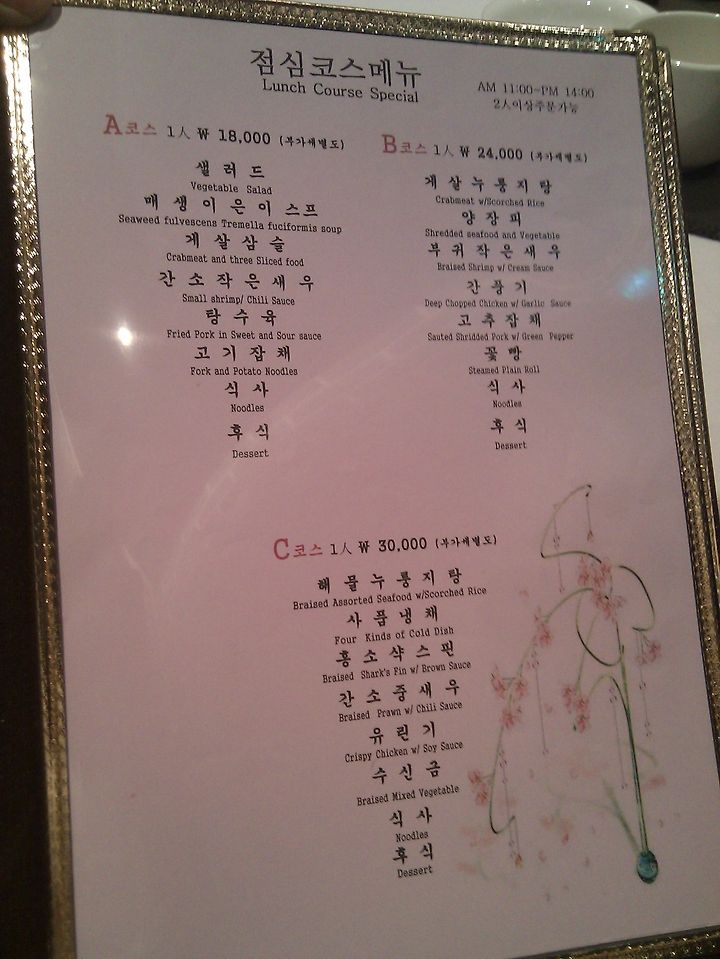 점심코스메뉴
Lunch Course Special
AM 11:00~PM 14:00
2人이상주문가능
A코스 1人 ₩ 18,000 (부가세별도)
샐러드
Vegetable Salad
매생이은이스프
Seaweed fulvescens Tremella fuciformis soup
게살삼슬
Crabmeat and three Sliced food
간소작은새우
Small shrimp/ Chili Sauce
탕수육
Fried Pork in Sweet and Sour sauce
고기잡채
Fork and Potato Noodles
식사
Noodles
후식
Dessert
B코스 1人 ₩ 24,000 (부가세별도)
게살누룽지탕
Crabmeat w/Scorched Rice
양장피
Shredded seafood and Vegetable
부귀작은새우
Braised Shrimp w/ Cream Sauce
간풍기
Deep Chopped Chicken w/ Garlic Sauce
고추잡채
Sauted Shridded Pork w/ Green Pepper
꽃빵
Steamed Plain Roll
식사
Noodles
후식
Dessert
C코스 1人 ₩ 30,000 (부가세별도)
해물누룽지탕
Braised Assorted Seafood w/Scorched Rice
사품냉채
Four Kinds of Cold Dish
홍소샥스핀
Braised Shark's Fin w/ Brown Sauce
간소중새우
Braised Prawn w/ Chili Sauce
유린기
Crispy Chicken w/ Soy Sauce
수신금
Braised Mixed Vegetable
식사
Noodles
후식
Dessert